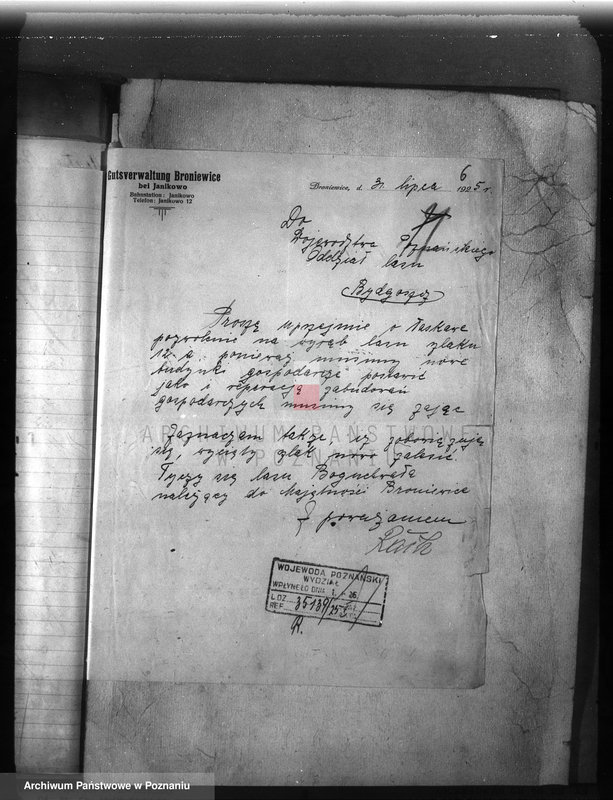 Gutsverwaltung Broniewice
bei Janikowo
Bahnstation: Janikowo
Telefon: Janikowo 12
Broniewice, d. 31 lipca 1925 r.
6
Do
Województwa Poznańskiego
Oddział lasu
Bydgoszcz
Proszę uprzejmie o łaskawe
pozwolenie na wyrąb lasu zlaku
12 a, ponieważ musimy nowe
budynki gospodarże postawić
jako i reperacją zabudowań
gospodarczych musimy się zająć
Zaznaczam także iż zobowiązuję
się, wycięty zlak nowo zalesić
Tyczy się lasu
należący do Majętności Broniewice
Z poważaniem
Rath
WOJEWODA POZNAŃSKI
WYDZIAŁ
WPŁYNĘŁO DNIA
L.DZ. 35139/25
REF.
R.
ARCHIWUM PAŃSTWOWE
W POZNANIU
Archiwum Państwowe w Poznaniu